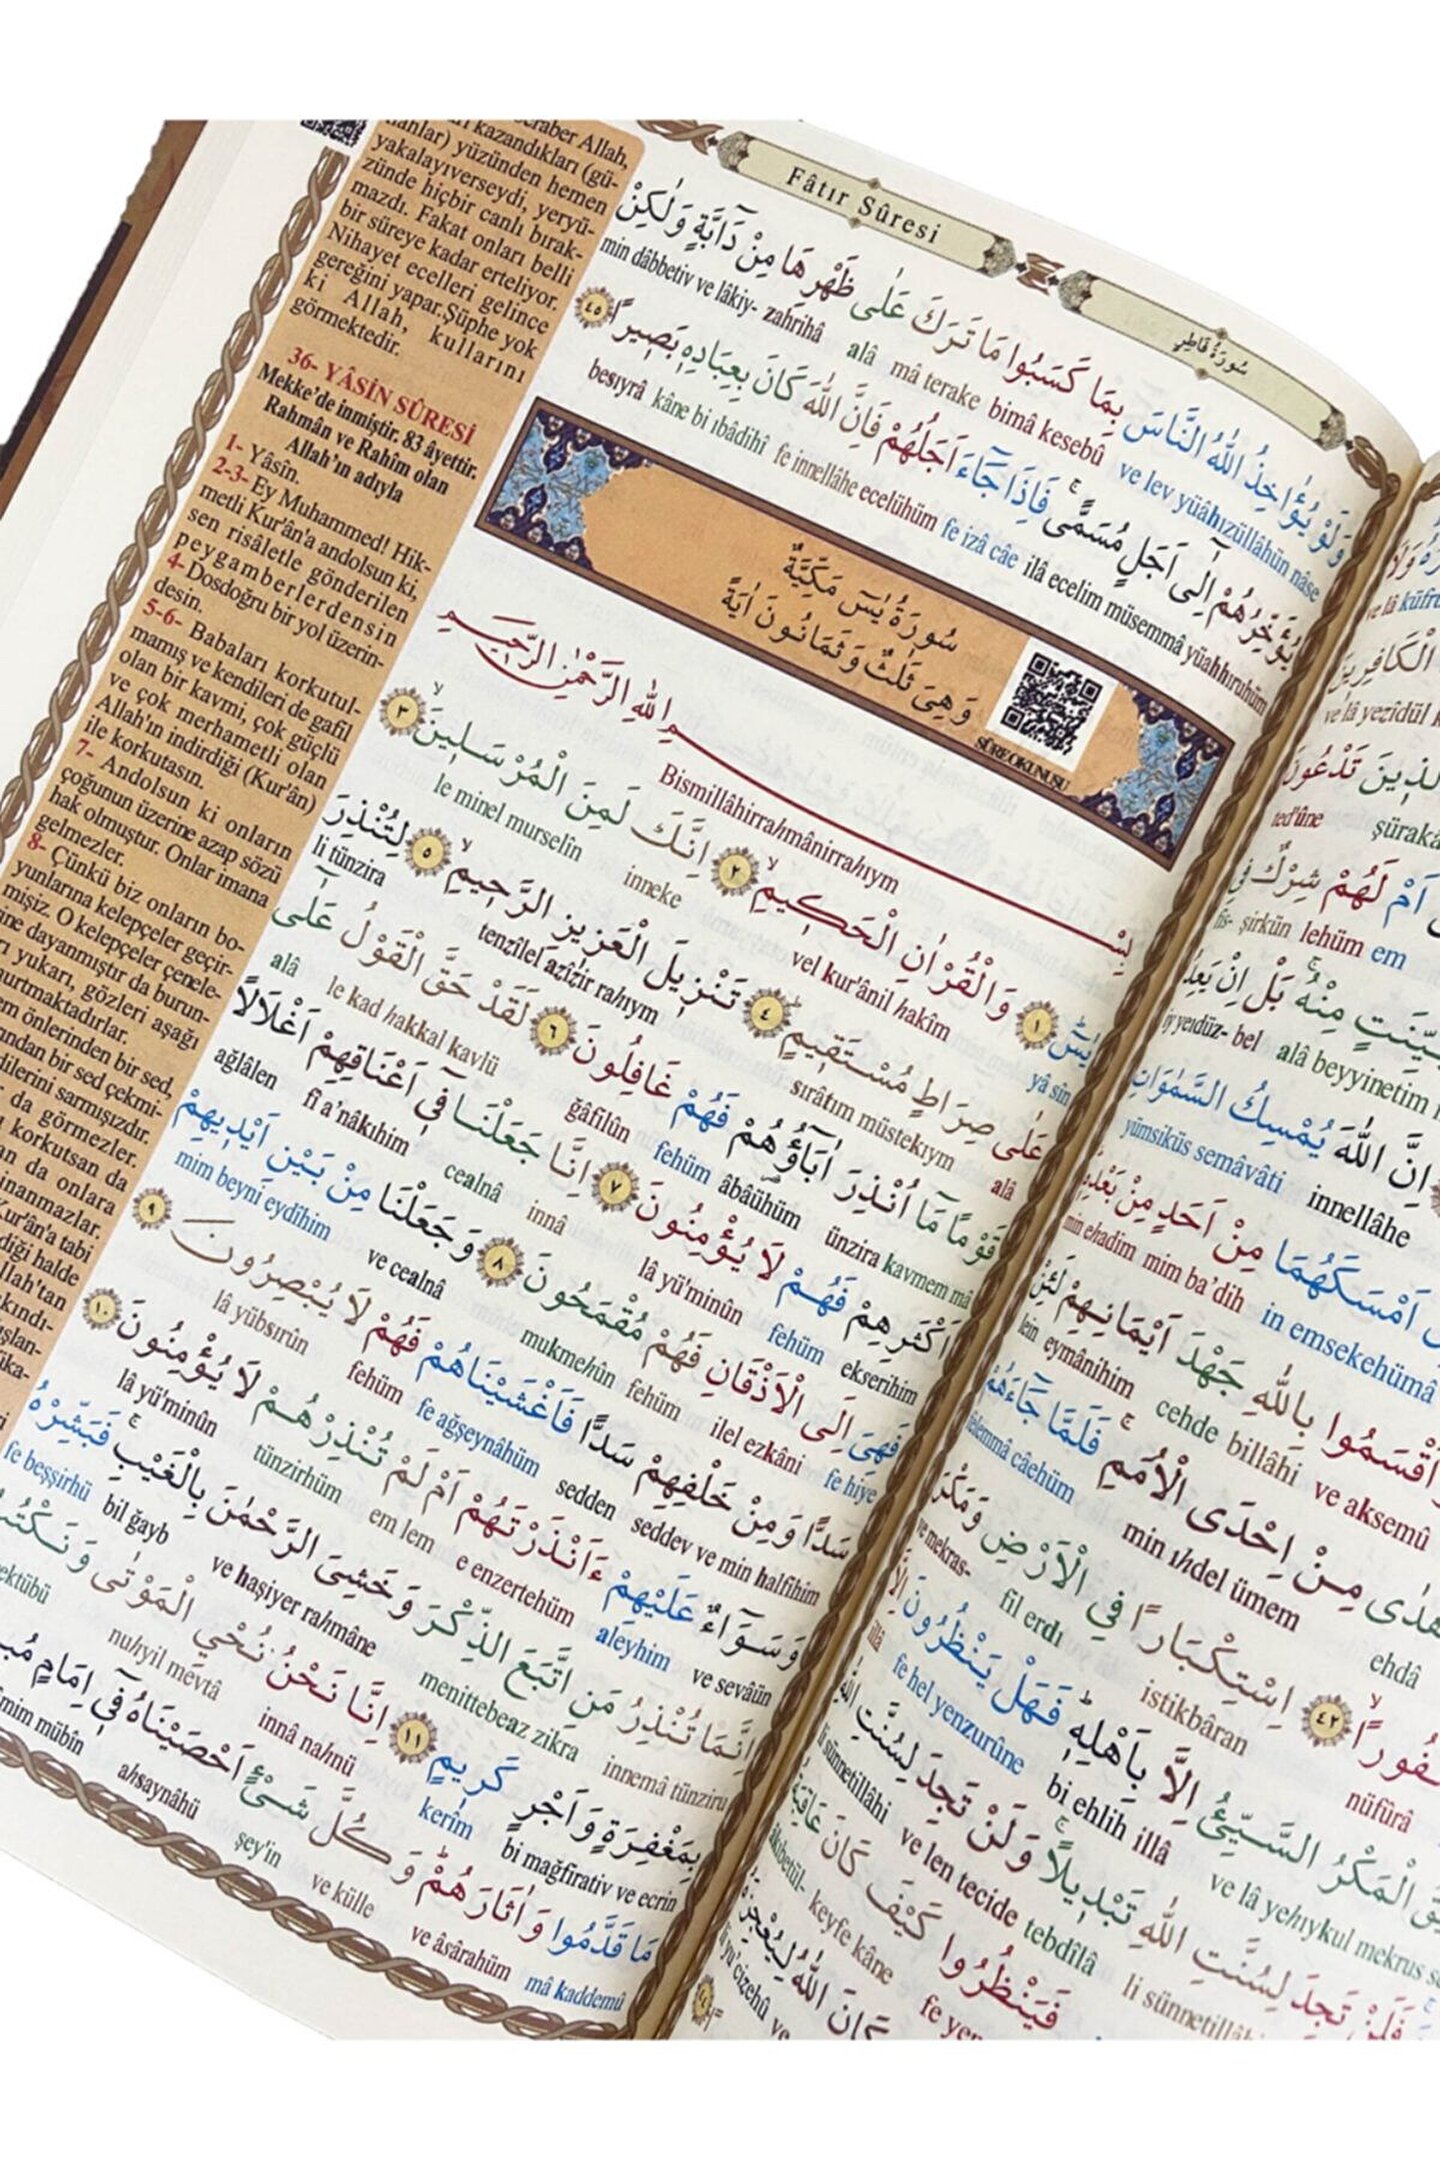 Fâtır Sûresi
سُورَةُ فَاطِرٍ
وَلَوْ يُؤَاخِذُ اللّٰهُ النَّاسَ بِمَا كَسَبُوا مَا تَرَكَ عَلٰى ظَهْرِهَا مِنْ دَٓابَّةٍ وَلٰكِنْ
ve lev yüâhızüllâhün nâse bimâ kesebû mâ terake alâ zahrihâ min dâbbetiv ve lâkiy-
يُؤَخِّرُهُمْ اِلٰٓى اَجَلٍ مُسَمًّىۚ فَاِذَا جَٓاءَ اَجَلُهُمْ فَاِنَّ اللّٰهَ كَانَ بِعِبَادِهٖ بَصٖيرًا ٤٥
yüahhıruhüm ilâ ecelim müsemmâ fe izâ câe ecelühüm fe innellâhe kâne bi ıbâdihî besıyrâ
سُورَةُ يٰسٓ مَكِّيَّةٌ
وَهِيَ ثَلٰثٌ وَثَمَانُونَ اٰيَةً
SÛRE OKUNUŞU
بِسْمِ اللّٰهِ الرَّحْمٰنِ الرَّحٖيمِ
Bismillâhirrahmânirrahıym
يٰسٓ ١ وَالْقُرْاٰنِ الْحَكٖيمِۙ ٢ اِنَّكَ لَمِنَ الْمُرْسَلٖينَۙ ٣
yâ sîn vel kur'ânil hakîm inneke le minel murselîn
عَلٰى صِرَاطٍ مُسْتَقٖيمٍ ٤ تَنْزٖيلَ الْعَزٖيزِ الرَّحٖيمِۙ ٥ لِتُنْذِرَ
alâ sırâtım müstekıym tenzîlel azîzir rahıym li tünzira
قَوْمًا مَٓا اُنْذِرَ اٰبَٓاؤُهُمْ فَهُمْ غَافِلُونَ ٦ لَقَدْ حَقَّ الْقَوْلُ عَلٰٓى
ünzira kavmem mâ âbâühüm fehüm ğâfilûn le kad hakkal kavlü alâ
اَكْثَرِهِمْ فَهُمْ لَا يُؤْمِنُونَ ٧ اِنَّا جَعَلْنَا فٖٓي اَعْنَاقِهِمْ اَغْلَالًا
ekserihim fehüm lâ yü'minûn innâ cealnâ fî a'nâkıhim ağlâlen
فَهِيَ اِلَى الْاَذْقَانِ فَهُمْ مُقْمَحُونَ ٨ وَجَعَلْنَا مِنْ بَيْنِ اَيْدٖيهِمْ
fe hiye ilel ezkâni fehüm mukmehûn ve cealnâ mim beyni eydîhim
سَدًّا وَمِنْ خَلْفِهِمْ سَدًّا فَاَغْشَيْنَاهُمْ فَهُمْ لَا يُبْصِرُونَ ٩
seddev ve min halfihim sedden fe ağşeynâhüm fehüm lâ yübsırûn
وَسَوَٓاءٌ عَلَيْهِمْ ءَاَنْذَرْتَهُمْ اَمْ لَمْ تُنْذِرْهُمْ لَا يُؤْمِنُونَ ١٠
ve sevâün aleyhim e enzertehüm em lem tünzirhüm lâ yü'minûn
اِنَّمَا تُنْذِرُ مَنِ اتَّبَعَ الذِّكْرَ وَخَشِيَ الرَّحْمٰنَ بِالْغَيْبِۚ فَبَشِّرْهُ
innemâ tünziru menittebeaz zikra ve haşiyer rahmâne bil ğayb fe beşşirhü
بِمَغْفِرَةٍ وَاَجْرٍ كَرٖيمٍ ١١ اِنَّا نَحْنُ نُحْيِ الْمَوْتٰى وَنَكْتُبُ
bi mağfirativ ve ecrin kerîm innâ nahnü nuhyil mevtâ
مَا قَدَّمُوا وَاٰثَارَهُمْؕ وَكُلَّ شَيْءٍ اَحْصَيْنَاهُ فٖٓي اِمَامٍ
mâ kaddemû ve âsârahüm ve külle şey'in ahsaynâhü mübîn
beraber Allah,
kazandıkları (gü-
nahlar) yüzünden hemen
yakalayıverseydi, yeryü-
zünde hiçbir canlı bırak-
mazdı. Fakat onları belli
bir süreye kadar erteliyor.
Nihayet ecelleri gelince
gereğini yapar.Şüphe yok
ki Allah, kullarını
görmektedir.
36- YÂSİN SÛRESİ
Mekke'de inmiştir. 83 âyettir.
Rahmân ve Rahîm olan
Allah'ın adıyla
1- Yâsîn.
2-3- Ey Muhammed! Hik-
metli Kur'ân'a andolsun ki,
sen risâletle gönderilen
peygamberlerdensin
4- Dosdoğru bir yol üzerin-
desin.
5-6- Babaları korkutul-
mamış ve kendileri de gafil
olan bir kavmi, çok güçlü
ve çok merhametli olan
Allah'ın indirdiği (Kur'ân)
ile korkutasın.
7- Andolsun ki onların
çoğunun üzerine azap sözü
hak olmuştur. Onlar imana
gelmezler.
8- Çünkü biz onların bo-
yunlarına kelepçeler geçir-
mişiz. O kelepçeler çenele-
rine dayanmıştır da burun-
yukarı, gözleri aşağı
önlerinden bir sed,
bir sed çekmi-
sarmışızdır.
da görmezler.
korkutsan da
da onlara
inanmazlar.
Kur'ân'a tabi
halde
Allah'tan
ve lâ
الْكَافِرٖينَ
ve lâ yezîdül
الَّذٖينَ تَدْعُونَ
ted'ûne
اَمْ لَهُمْ شِرْكٌ فِي
em lehüm şirkün fis-
بَيِّنَتٍ مِنْهُۚ بَلْ اِنْ يَعِدُ
alâ beyyinetim bel iy yeıdüz-
اِنَّ اللّٰهَ يُمْسِكُ السَّمٰوَاتِ
innellâhe yümsiküs semâvâti
اَمْسَكَهُمَا مِنْ اَحَدٍ مِنْ بَعْدِهٖ
in emsekehümâ min ehadim mim ba'dih
اَقْسَمُوا بِاللّٰهِ جَهْدَ اَيْمَانِهِمْ لَئِنْ
ve aksemû billâhi cehde eymânihim lein
اَهْدٰى مِنْ اِحْدَى الْاُمَمِۚ فَلَمَّا جَٓاءَهُمْ
ehdâ min ıhdel ümem felemmâ câehüm
نُفُورًاۙ ٤٢ اِسْتِكْبَارًا فِي الْاَرْضِ وَمَكْرَ
nüfûrâ istikbâran fil erdı ve mekras-
الْمَكْرُ السَّيِّئُ اِلَّا بِاَهْلِهٖؕ فَهَلْ يَنْظُرُونَ اِلَّا
ve lâ yehıykul mekrus bi ehlih illâ fe hel yenzurûne illâ
فَلَنْ تَجِدَ لِسُنَّتِ اللّٰهِ تَبْدٖيلًاۚ وَلَنْ تَجِدَ لِسُنَّتِ اللّٰهِ
li sünnetillâhi tebdîlâ ve len tecide li sünnetillâhi
فَيَنْظُرُوا كَيْفَ كَانَ عَاقِبَةُ
keyfe kâne âkıbetül-
كَانَ اللّٰهُ لِيُعْجِزَهُ
li yu'cizehû